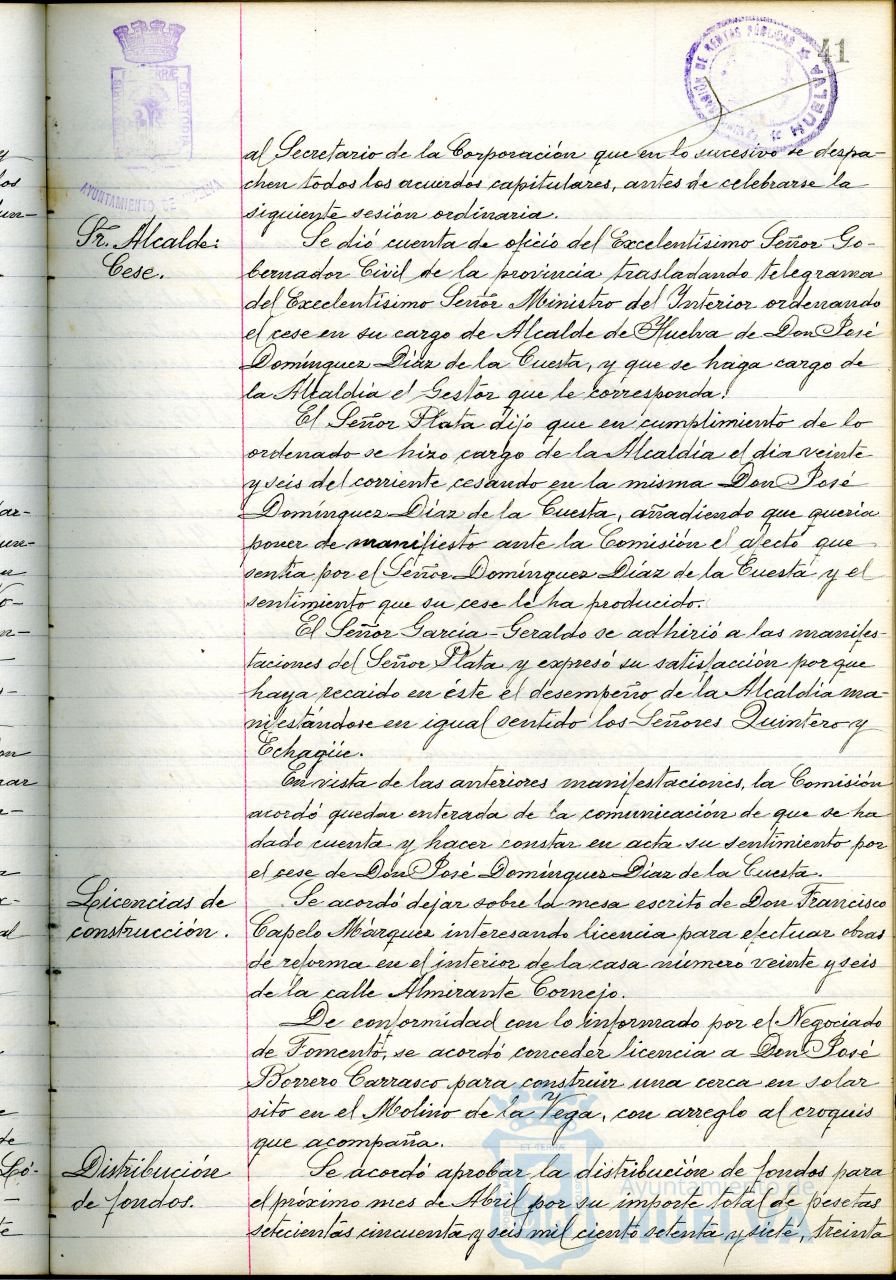 41
AYUNTAMIENTO DE HUELVA
HUELVA
al Secretario de la Corporación que en lo sucesivo se despa-
chen todos los acuerdos capitulares, antes de celebrarse la
siguiente sesión ordinaria.
Sr. Alcalde:
Cese.
Se dió cuenta de oficio del Excelentísimo Señor Go-
bernador Civil de la provincia trasladando telegrama
del Excelentísimo Señor Ministro del Interior ordenando
el cese en su cargo de Alcalde de Huelva de Don José
Domínguez Díaz de la Cuesta, y que se haga cargo de
la Alcaldía el Gestor que le corresponda.
El Señor Plata dijo que en cumplimiento de lo
ordenado se hizo cargo de la Alcaldía el dia veinte
y seis del corriente cesando en la misma Don José
Domínguez Díaz de la Cuesta, añadiendo que queria
poner de manifiesto ante la Comisión el afecto que
sentia por el Señor Domínguez Díaz de la Cuesta y el
sentimiento que su cese le ha producido.
El Señor García-Geraldo se adhirió a las manifes-
taciones del Señor Plata y expresó su satisfacción porque
haya recaido en éste el desempeño de la Alcaldía ma-
niestándose en igual sentido los Señores Quintero y
Echagüe.
En vista de las anteriores manifestaciones, la Comisión
acordó quedar enterada de la comunicación de que se ha
dado cuenta y hacer constar en acta su sentimiento por
el cese de Don José Domínguez Díaz de la Cuesta.
Licencias de
construcción.
Se acordó dejar sobre la mesa escrito de Don Francisco
Capelo Márquez interesando licencia para efectuar obras
de reforma en el interior de la casa número veinte y seis
de la calle Almirante Cornejo.
De conformidad con lo informado por el Negociado
de Fomento, se acordó conceder licencia a Don José
Borrero Carrasco para construir una cerca en solar
sito en el Molino de la Vega, con arreglo al croquis
que acompaña.
Distribución
de fondos.
Se acordó aprobar la distribución de fondos para
el próximo mes de Abril por su importe total de pesetas
setecientas cincuenta y seis mil ciento setenta y siete, treinta
Ayuntamiento de
HUELVA